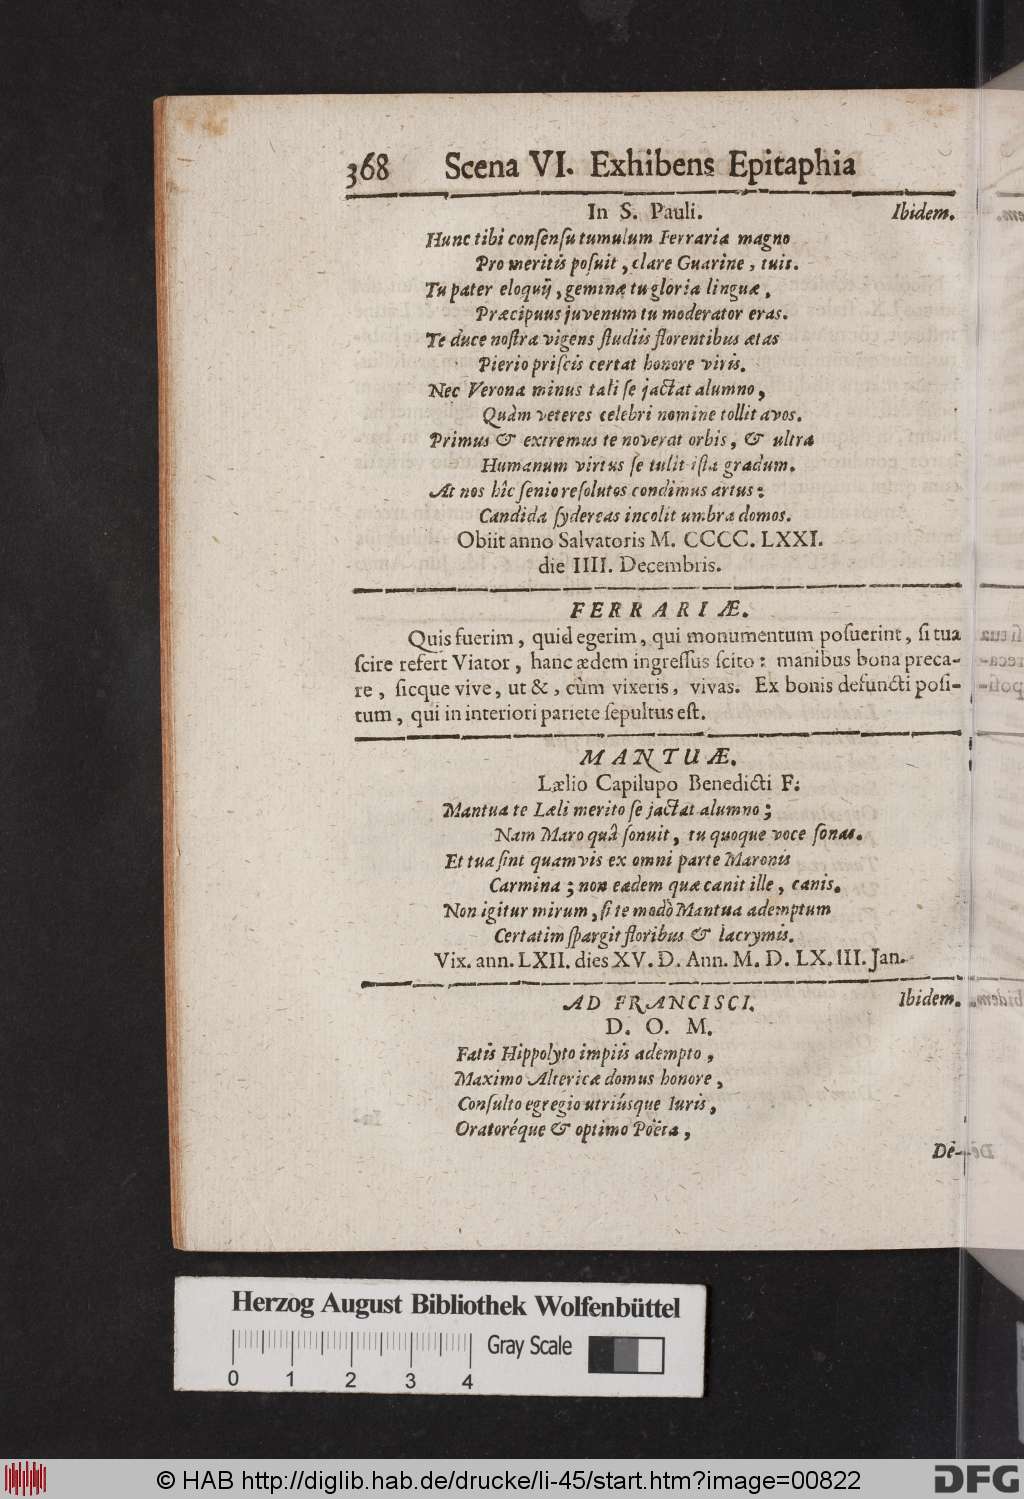 368 Scena VI. Exhibens Epitaphia
In S. Pauli. Ibidem.
Hunc tibi conſenſu tumulum Ferraria magno
Pro meritis poſuit, clare Guarine, tuis.
Tu pater eloquij, geminæ tu gloria linguæ,
Præcipuus juvenum tu moderator eras.
Te duce noſtra vigens ſtudiis florentibus ætas
Pierio priſcis certat honore viris.
Nec Verona minus tali ſe jactat alumno,
Quàm veteres celebri nomine tollit avos.
Primus & extremus te noverat orbis, & ultra
Humanum virtus ſe tulit iſta gradum.
At nos hîc ſenio reſolutos condimus artus:
Candida ſydereas incolit umbra domos.
Obiit anno Salvatoris M. CCCC. LXXI.
die IIII. Decembris.
FERRARIÆ.
Quis fuerim, quid egerim, qui monumentum poſuerint, ſi tua
ſcire refert Viator, hanc ædem ingreſſus ſcito: manibus bona preca-
re, ſicque vive, ut &, cùm vixeris, vivas. Ex bonis defuncti poſi-
tum, qui in interiori pariete ſepultus eſt.
MANTUÆ.
Lælio Capilupo Benedicti F:
Mantua te Læli merito ſe jactat alumno;
Nam Maro quâ ſonuit, tu quoque voce ſonas.
Et tua ſint quamvis ex omni parte Maronis
Carmina; non eadem quæ canit ille, canis.
Non igitur mirum, ſi te modò Mantua ademptum
Certatim ſpargit floribus & lacrymis.
Vix. ann. LXII. dies XV. D. Ann. M. D. LX. III. Jan.
AD FRANCISCI. Ibidem.
D. O. M.
Fatis Hippolyto impiis adempto,
Maximo Altericæ domus honore,
Conſulto egregio utriúsque Iuris,
Oratoréque & optimo Poëta,
Dè-
Herzog August Bibliothek Wolfenbüttel
Gray Scale
0 1 2 3 4
© HAB http://diglib.hab.de/drucke/li-45/start.htm?image=00822
DFG